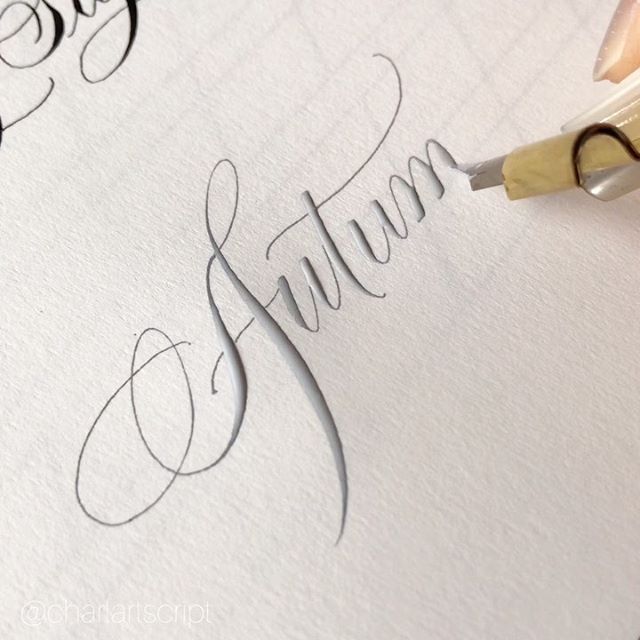 Autum
@charlartscript